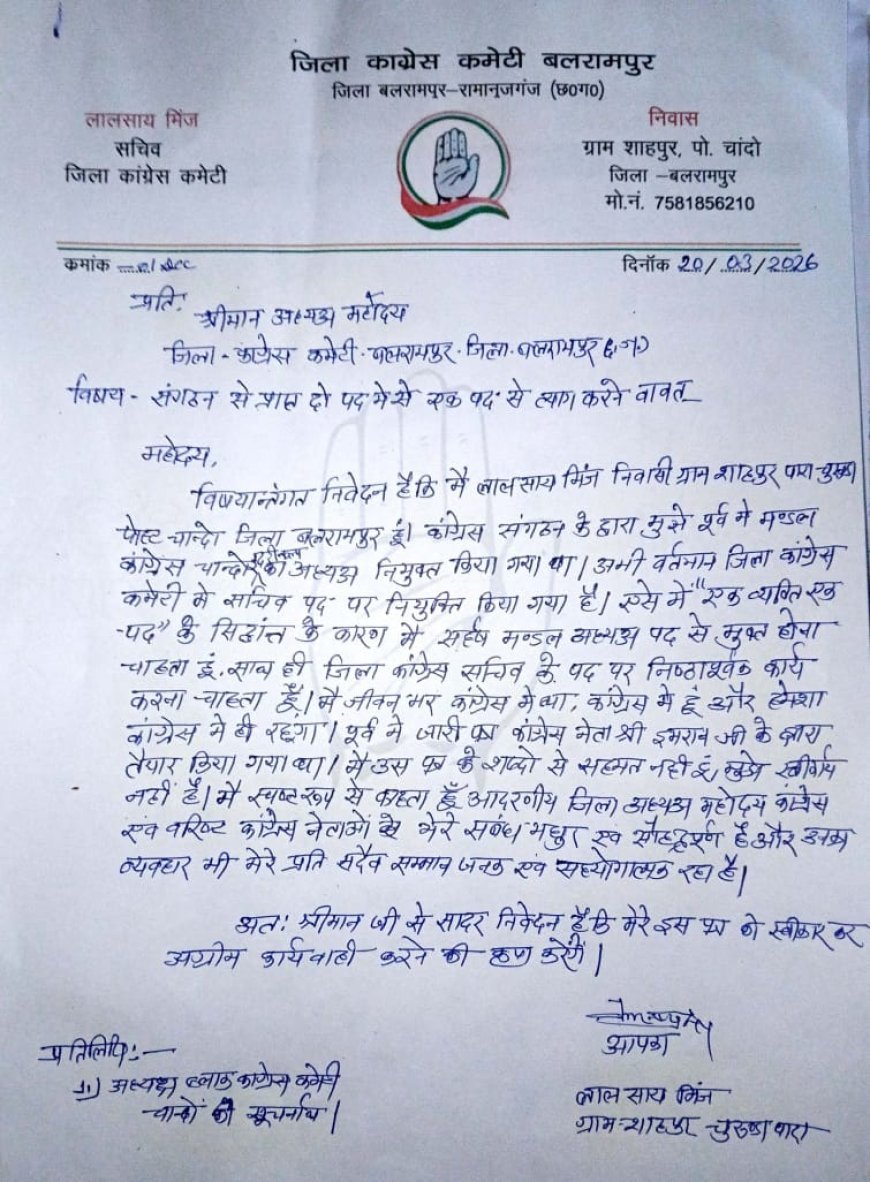 जिला काग्रेस कमेटी बलरामपुर
जिला बलरामपुर–रामानुजगंज (छ०ग०)
लालसाय मिंज
सचिव
जिला कांग्रेस कमेटी
निवास
ग्राम शाहपुर, पो. चांदो
जिला –बलरामपुर
मो.नं. 7581856210
कमांक
दिनॉक 20/03/2026
प्रति:
श्रीमान अध्यक्ष महोदय
जिला - कांग्रेस कमेटी. बलरामपुर. जिला. बलरामपुर छ.ग.
विषय - संगठन से प्राप्त दो पद मे से एक पद से त्याग करने बावत
महोदय,
विषयान्तंगत निवेदन है कि मै लाल साय मिंज निवासी ग्राम शाहपुर पारा
पोस्ट चान्दो जिला बलरामपुर हूं। कांग्रेस संगठन के द्वारा मुझे पूर्व मे मण्डल
कांग्रेस चान्दो का अध्यक्ष नियुक्त किया गया था। अभी वर्तमान जिला कांग्रेस
कमेटी मे सचिव पद पर नियुक्ति किया गया है। ऐसे में "एक व्यक्ति एक
पद" के सिद्धांत के कारण मै सहर्ष मण्डल अध्यक्ष पद से मुक्त होना
चाहता हूं. साथ ही जिला कांग्रेस सचिव के पद पर निष्ठापूर्वक कार्य
करना चाहता हूँ। मै जीवन भर कांग्रेस मे था, कांग्रेस मे हूं और हमेशा
कांग्रेस मे ही रहूंगा। पूर्व मे जारी पत्र कांग्रेस नेता श्री इमरान जी के द्वारा
तैयार किया गया था। मै उस पत्र के शब्दो से सहमत नहीं हूं, मुझे स्वीकार्य
नहीं है। मै स्पष्ट रूप से कहता हूँ आदरणीय जिला अध्यक्ष महोदय कांग्रेस
एवं वरिष्ट कांग्रेस नेताओं से मेरे संबंध मधुर एवं सौहार्द्रपूर्ण है और उनका
व्यवहार भी मेरे प्रति सदैव सम्मान जनक एवं सहयोगात्मक रहा है।
अतः श्रीमान जी से सादर निवेदन है कि मेरे इस पत्र को स्वीकार कर
अग्रीम कार्यवाही करने की कृपा करेंगे।
आपका
लाल साय मिंज
ग्राम-शाहपुर चुरूका पारा
प्रतिलिपि:-
1.) अध्यक्ष ब्लाक कांग्रेस कमेटी
चान्दो को सूचनार्थ।